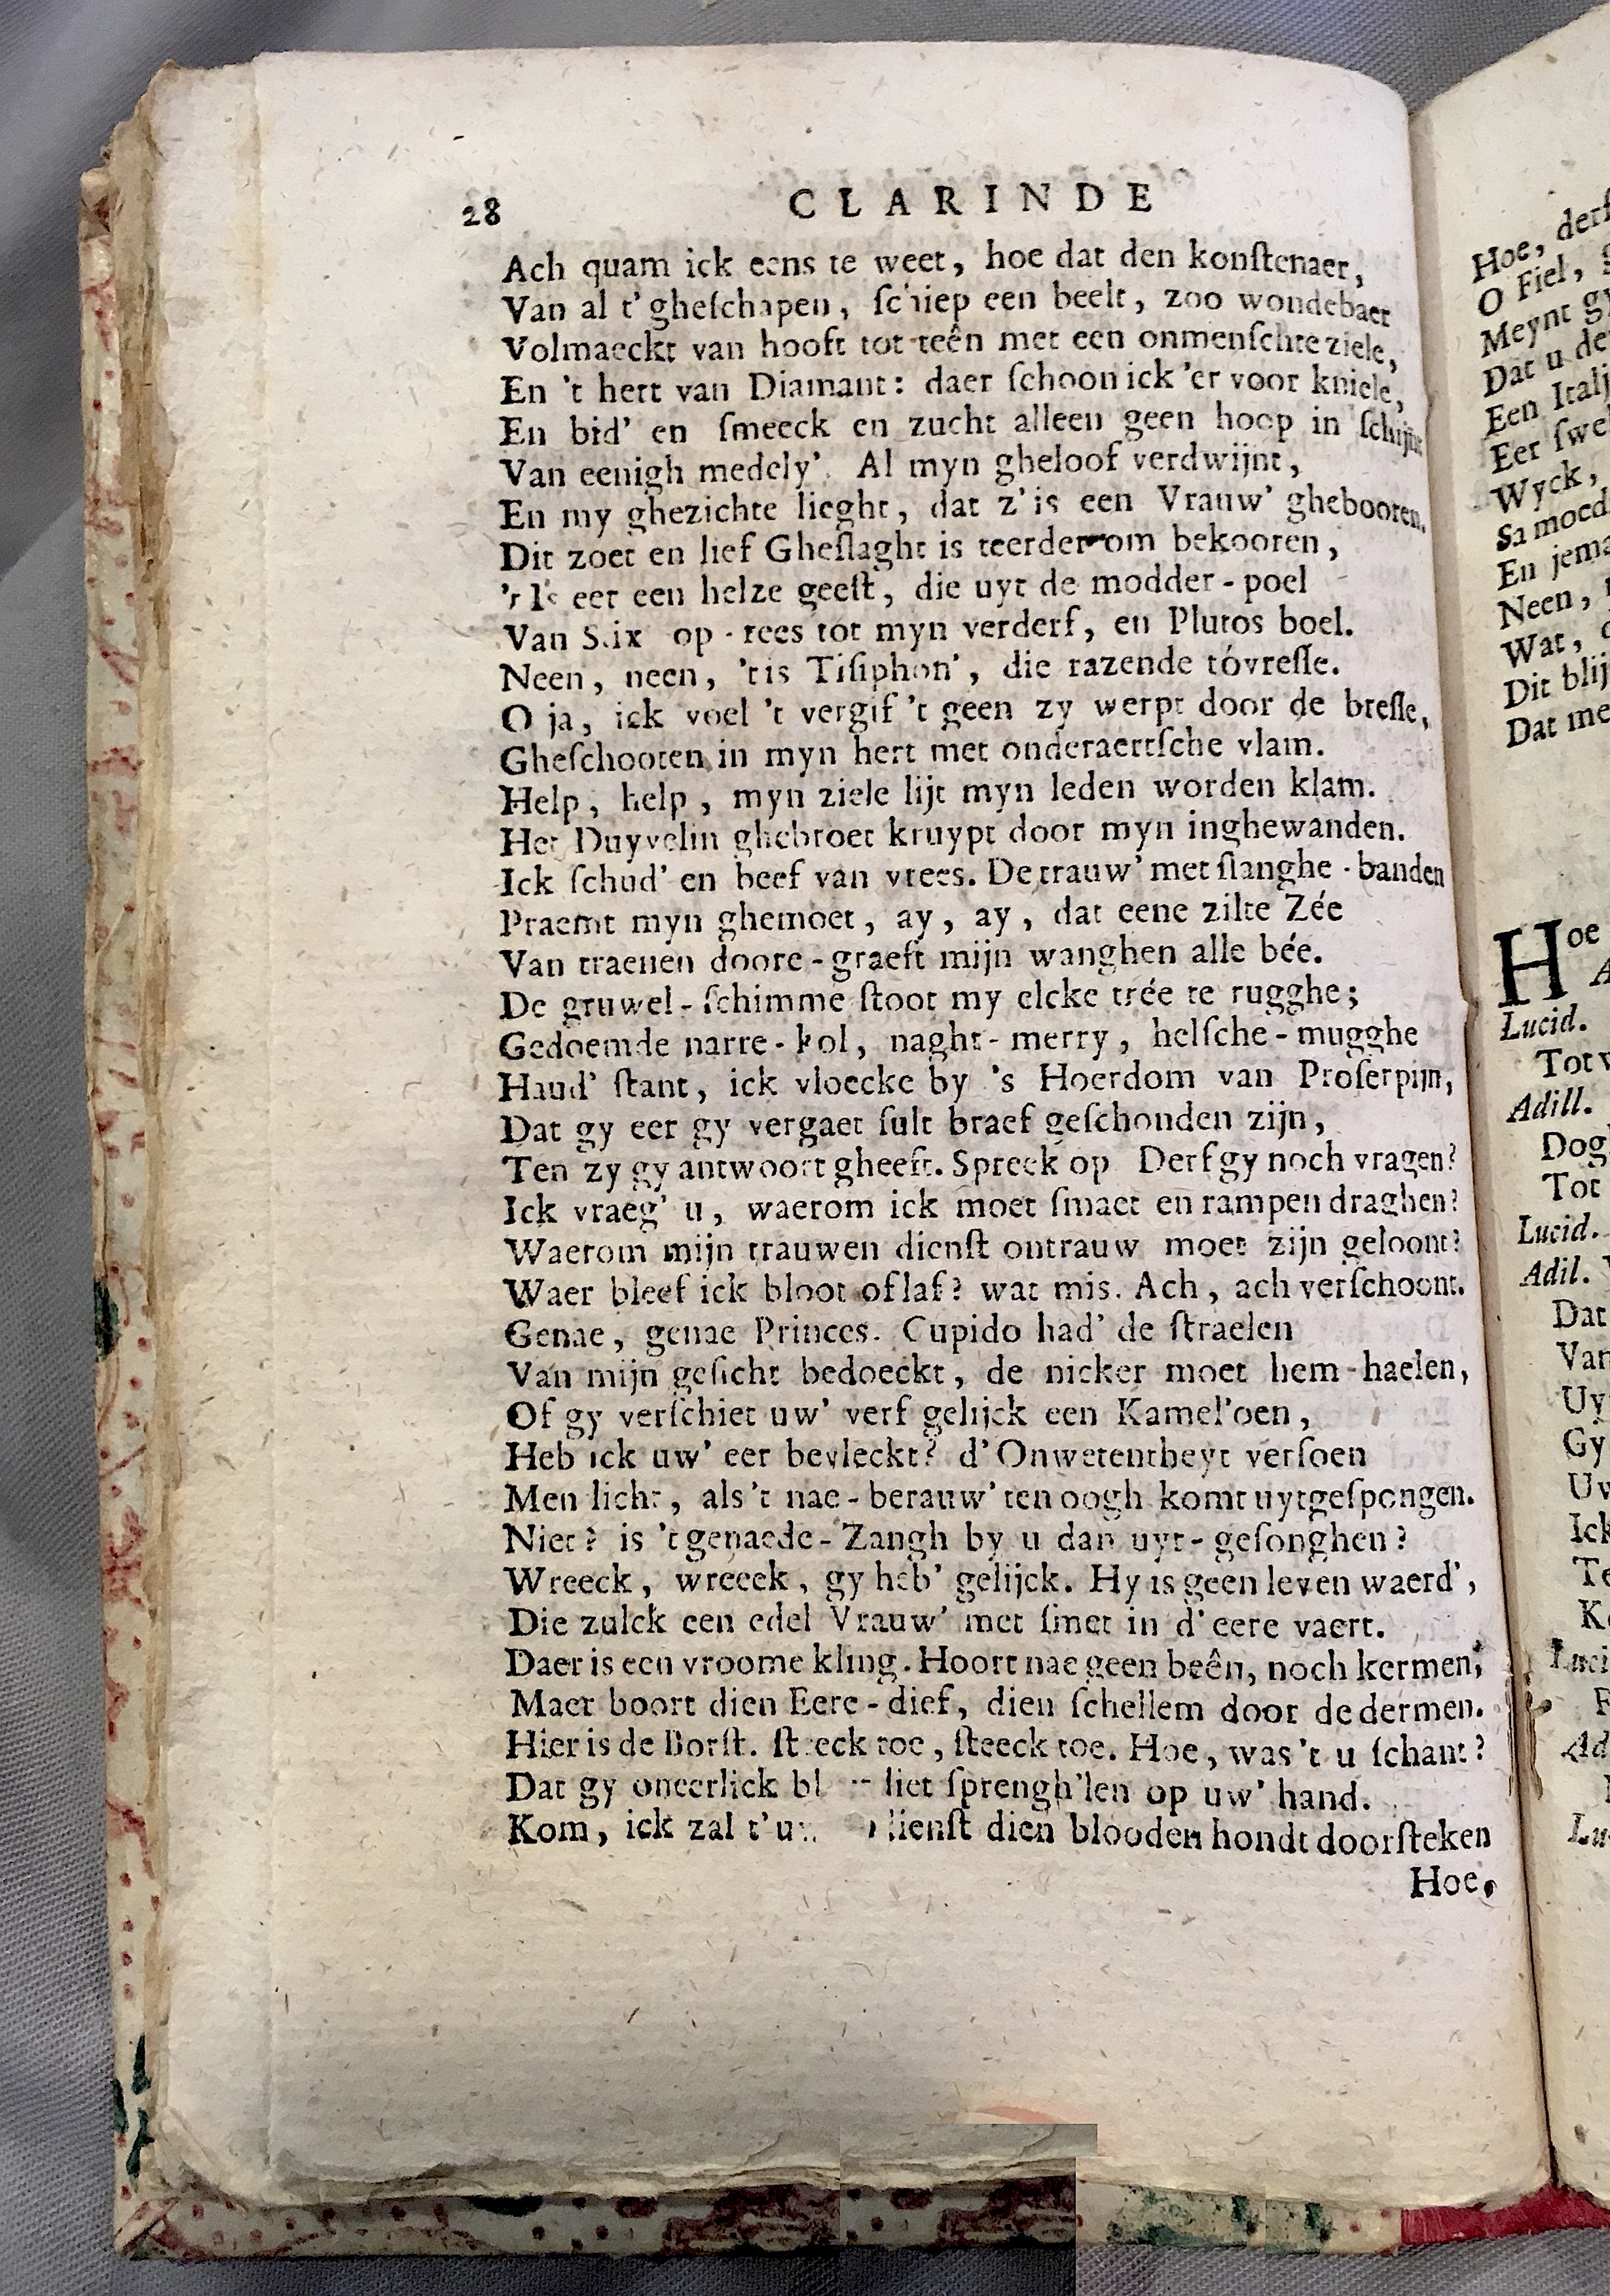 28 CLARINDE
Ach quam ick eens te weet, hoe dat den konſtenaer,
Van al t'gheſchapen, ſchiep een beelt, zoo wondebaer
Volmaeckt van hooft tot teên met een onmenſchte ziele,
En 't hert van Diamant: daer ſchoon ick 'er voor kniele,
En bid' en ſmeeck en zucht alleen geen hoop in ſchijnt
Van eenigh medely'. Al myn gheloof verdwijnt,
En my ghezichte lieght, dat z'is een Vrauw' ghebooren.
Dit zoet en lief Gheſlaght is teerder om bekooren,
't Is eer een helze geeſt, die uyt de modder-poel
Van Stix op-rees tot myn verderf, en Plutos boel.
Neen, neen, 'tis Tiſiphon', die razende tóvreſſe.
O ja, ick voel 't vergif 't geen zy werpt door de breſſe,
Gheſchooten in myn hert met onderaertſche vlam.
Help, help, myn ziele lijt myn leden worden klam.
Het Duyvelin ghebroet kruypt door myn inghewanden.
Ick ſchud' en beef van vrees. De trauw' met ſlanghe-banden
Praemt myn ghemoet, ay, ay, dat eene zilte Zée
Van traenen doore-graeft mijn wanghen alle bée.
De gruwel-ſchimme ſtoot my elcke trée te rugghe;
Gedoemde narre-kol, naght-merry, helſche-mugghe
Haud' ſtant, ick vloecke by 's Hoerdom van Proſerpijn,
Dat gy eer gy vergaet ſult braef geſchonden zijn,
Ten zy gy antwoort gheeft. Spreek op Derf gy noch vragen?
Ick vraeg' u, waerom ick moet ſmaet en rampen draghen?
Waerom mijn trauwen dienſt ontrauw moet zijn geloont?
Waer bleef ick bloot of laf? wat mis. Ach, ach verſchoont.
Genae, genae Princes. Cupido had' de ſtraelen
Van mijn geſicht bedoeckt, de nicker moet hem-haelen,
Of gy verſchiet uw' verf gelijck een Kamel'oen,
Heb ick uw' eer bevleckt? d'Onwetentheyt verſoen
Men licht, als 't nae-berauw' ten oogh komt uytgeſpongen.
Niet? is 't genaede-Zangh by u dan uyt-geſonghen?
Wreeck, wreeek, gy heb' gelijck. Hy is geen leven waerd',
Die zulck een edel Vrauw' met ſmet in d'eere vaert.
Daer is een vroome kling. Hoort nae geen beên, noch kermen,
Maer boort dien Eere-dief, dien ſchellem door de dermen.
Hier is de Borſt. ſteeck toe, ſteeck toe. Hoe, was 't u ſchant?
Dat gy oneerlick liet ſprengh'len op uw' hand.
Kom, ick zal dienſt dien blooden hondt doorſteken
Hoe,
Hoe,
O Fiel,
Meynt
Dat u
Een
Eer
Wyck,
Sa moed
En
Neen,
Wat,
Dit
Dat
Hoe
Lucid.
Tot
Adill.
Tot
Lucid.
Adil.
Dat
Gy